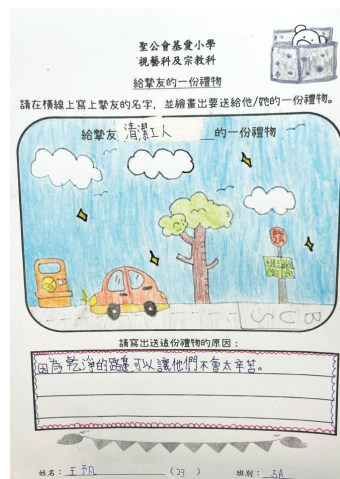 聖公會基愛小學
視藝科及宗教科
給摯友的一份禮物
請在橫線上寫上摯友的名字，並繪畫出要送給他/她的一份禮物。
給摯友 清潔工人 的一份禮物
BUS
請寫出送這份禮物的原因：
因為乾淨的路邊可以讓他們不會太辛苦。
姓名： 王 （23） 班別： 5A